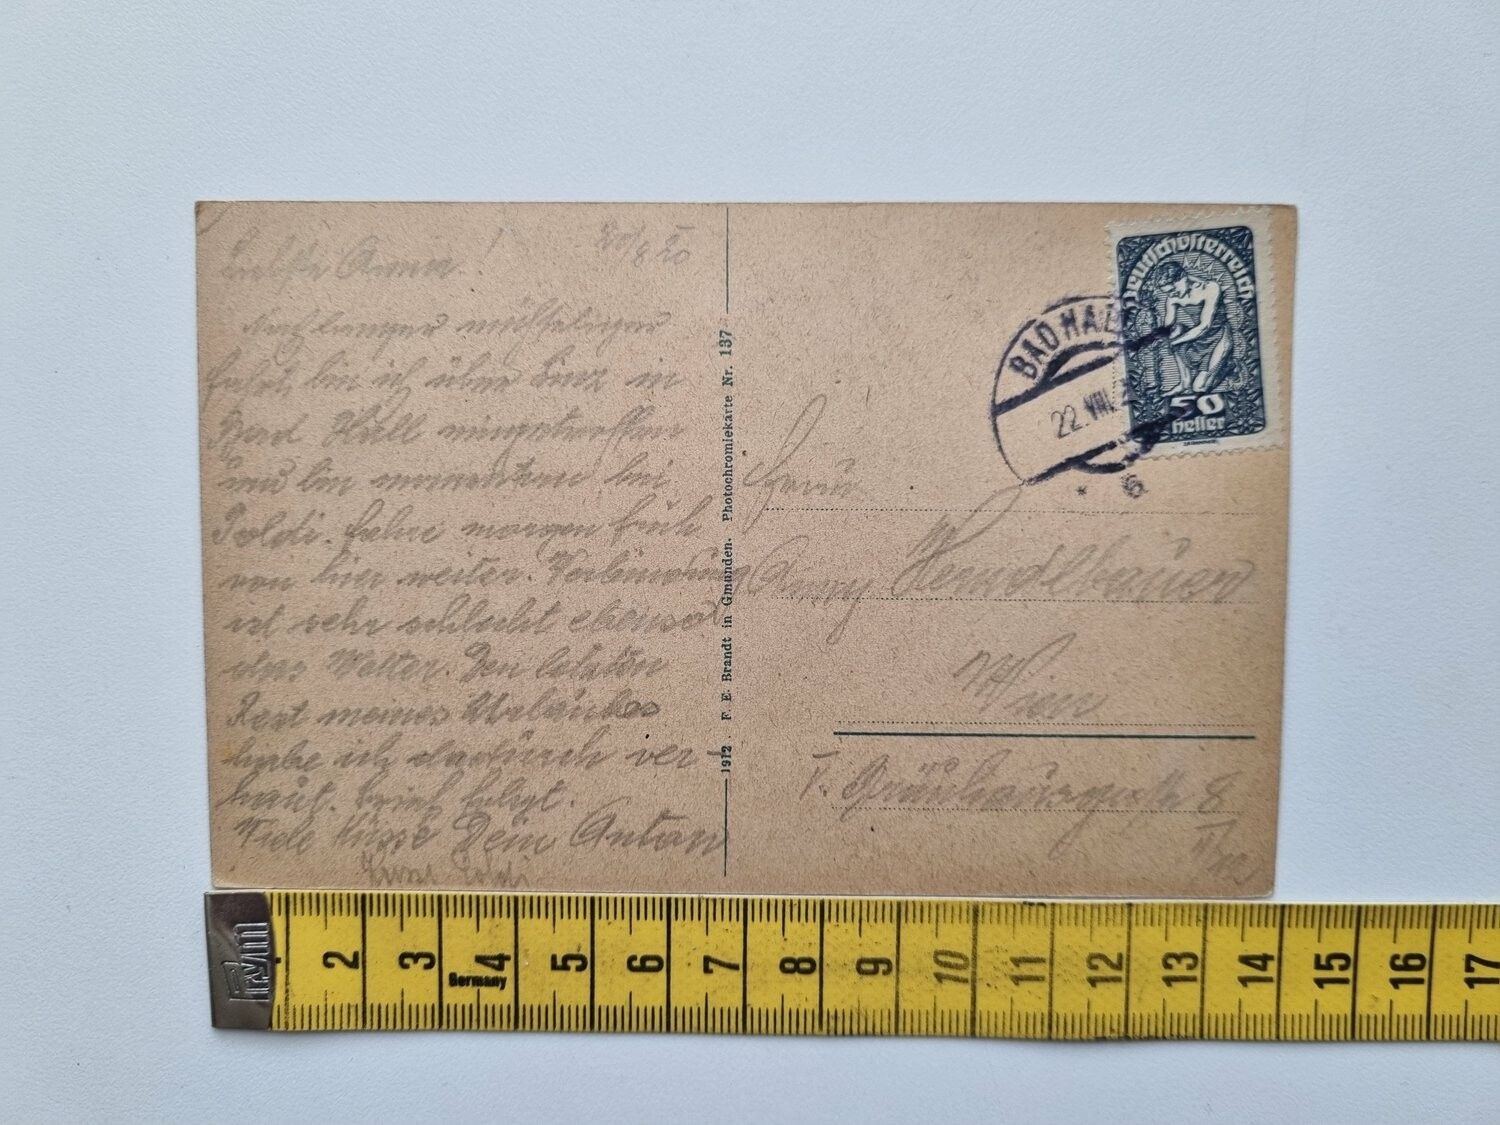 Liebste Anna!
20/8 20
Nach langer mühseliger
Fahrt bin ich über Linz in
Bad Hall eingetroffen
und bin momentan bei
Poldi. Fahre morgen früh
von hier weiter. Verbindung
ist sehr schlecht ebenso
das Wetter. Den letzten
Rest meines Urlaubes
habe ich dadurch ver-
haut. Brief folgt.
Viele Küsse Dein Anton
Poldi
1912. F. E. Brandt in Gmunden. Photochromiekarte Nr. 137
Deutschösterreich
50
Heller
BAD HALL
22. VIII. 2
* 6
Frau
Anny
Wien
V. 8